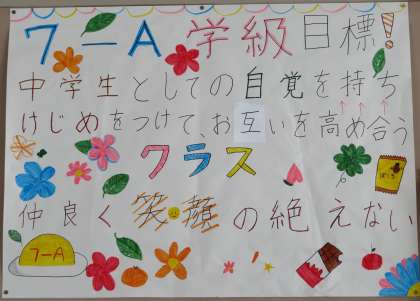 7-A 学級目標!
中学生としての自覚を持ち
けじめをつけて、お互いを高め合う
クラス
仲良く 笑顔の絶えない
7-A